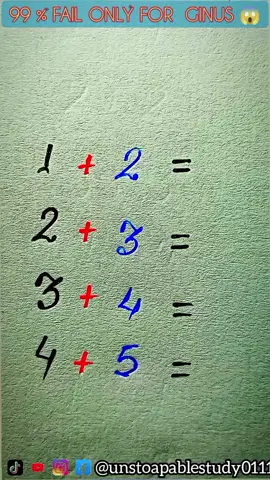 99 % FAIL ONLY FOR GINUS 😱
1 + 2 =
2 + 3 =
3 + 4 =
4 + 5 =
@unstoapablestudy0111